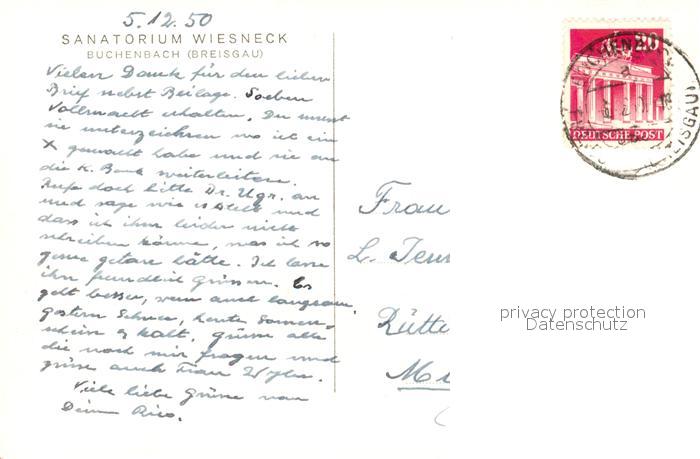 5.12.50
SANATORIUM WIESNECK
BUCHENBACH (BREISGAU)
Vielen Dank für den lieben
Brief nebst Beilage. Soeben
Vollmacht erhalten. Du musst
sie unterzeichnen wo ich ein
X gemacht habe und sie an
die K. Bank weiterleiten.
Rufe doch bitte Dr. Ugr. an
und sage wie es steht und
dass ich ihm leider nicht
schreiben könne, was ich so
gerne getan hätte. Ich lasse
ihn freundlich grüssen. Es
geht besser, wenn auch langsam,
gestern Schnee, heute Sonnen-
schein & kalt. Grüsse alle
die nach mir fragen und
grüsse auch Frau
Viele liebe Grüsse von
Deinem Rico.
Frau
L.
Rütte
20
DEUTSCHE POST
BREISGAU)
privacy protection
Datenschutz